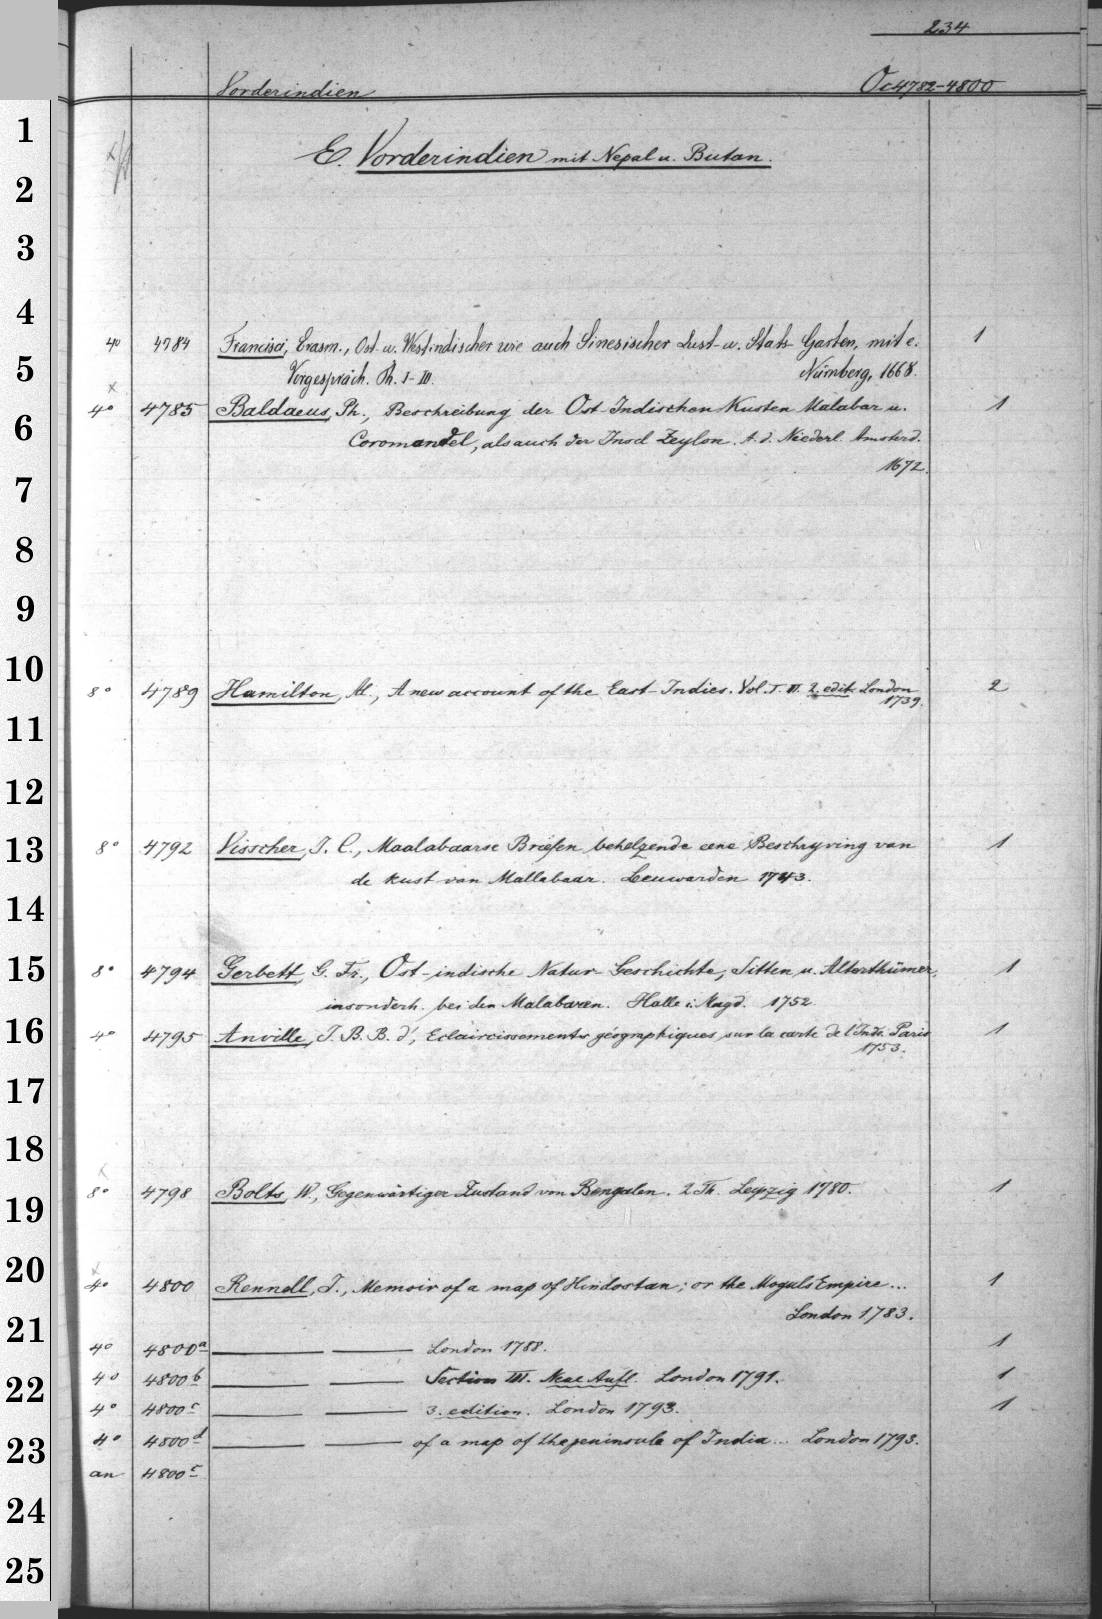 234
Vorderindien Oc 4782-4800
1
2
3
4
5
6
7
8
9
10
11
12
13
14
15
16
17
18
19
20
21
22
23
24
25
E. Vorderindien mit Nepal u. Butan.
4° 4784 Francisci, Erasm., Ost- u. West-indischer wie auch Sinesischer Lust- u. Stats-Garten, mit e. 1
Vorgespräch. Th. I-III. Nürnberg, 1668.
4° 4785 Baldaeus, Ph., Beschreibung der Ost-Indischen Kusten Malabar u. 1
Coromandel, als auch der Insel Zeylon. A. d. Niederl. Amsterd.
1672.
8° 4789 Hamilton, Al., A new account of the East-Indies. Vol. I. II. 2. edit. London 2
1739.
8° 4792 Visscher, J. C., Maalabaarse Briefen behelzende eene Beschryving van 1
de kust van Mallabaar. Leeuwarden 1743.
8° 4794 Gerbett, G. Fr., Ost-indische Natur-Geschichte, Sitten u. Alterthümer, 1
insonderh. bei den Malabaren. Halle i. Magd. 1752.
4° 4795 Anville, J. B. B. d', Eclaircissements géographiques sur la carte de l'Inde. Paris 1
1753.
8° 4798 Bolts, W., Gegenwärtiger Zustand von Bengalen. 2 Th. Leipzig 1780. 1
4° 4800 Rennell, J., Memoir of a map of Hindostan; or the Moguls Empire... 1
London 1783.
4° 4800a London 1788. 1
4° 4800b Section III. Neue Aufl. London 1791. 1
4° 4800c 3. edition. London 1793. 1
4° 4800d of a map of the peninsula of India... London 1793.
an 4800c